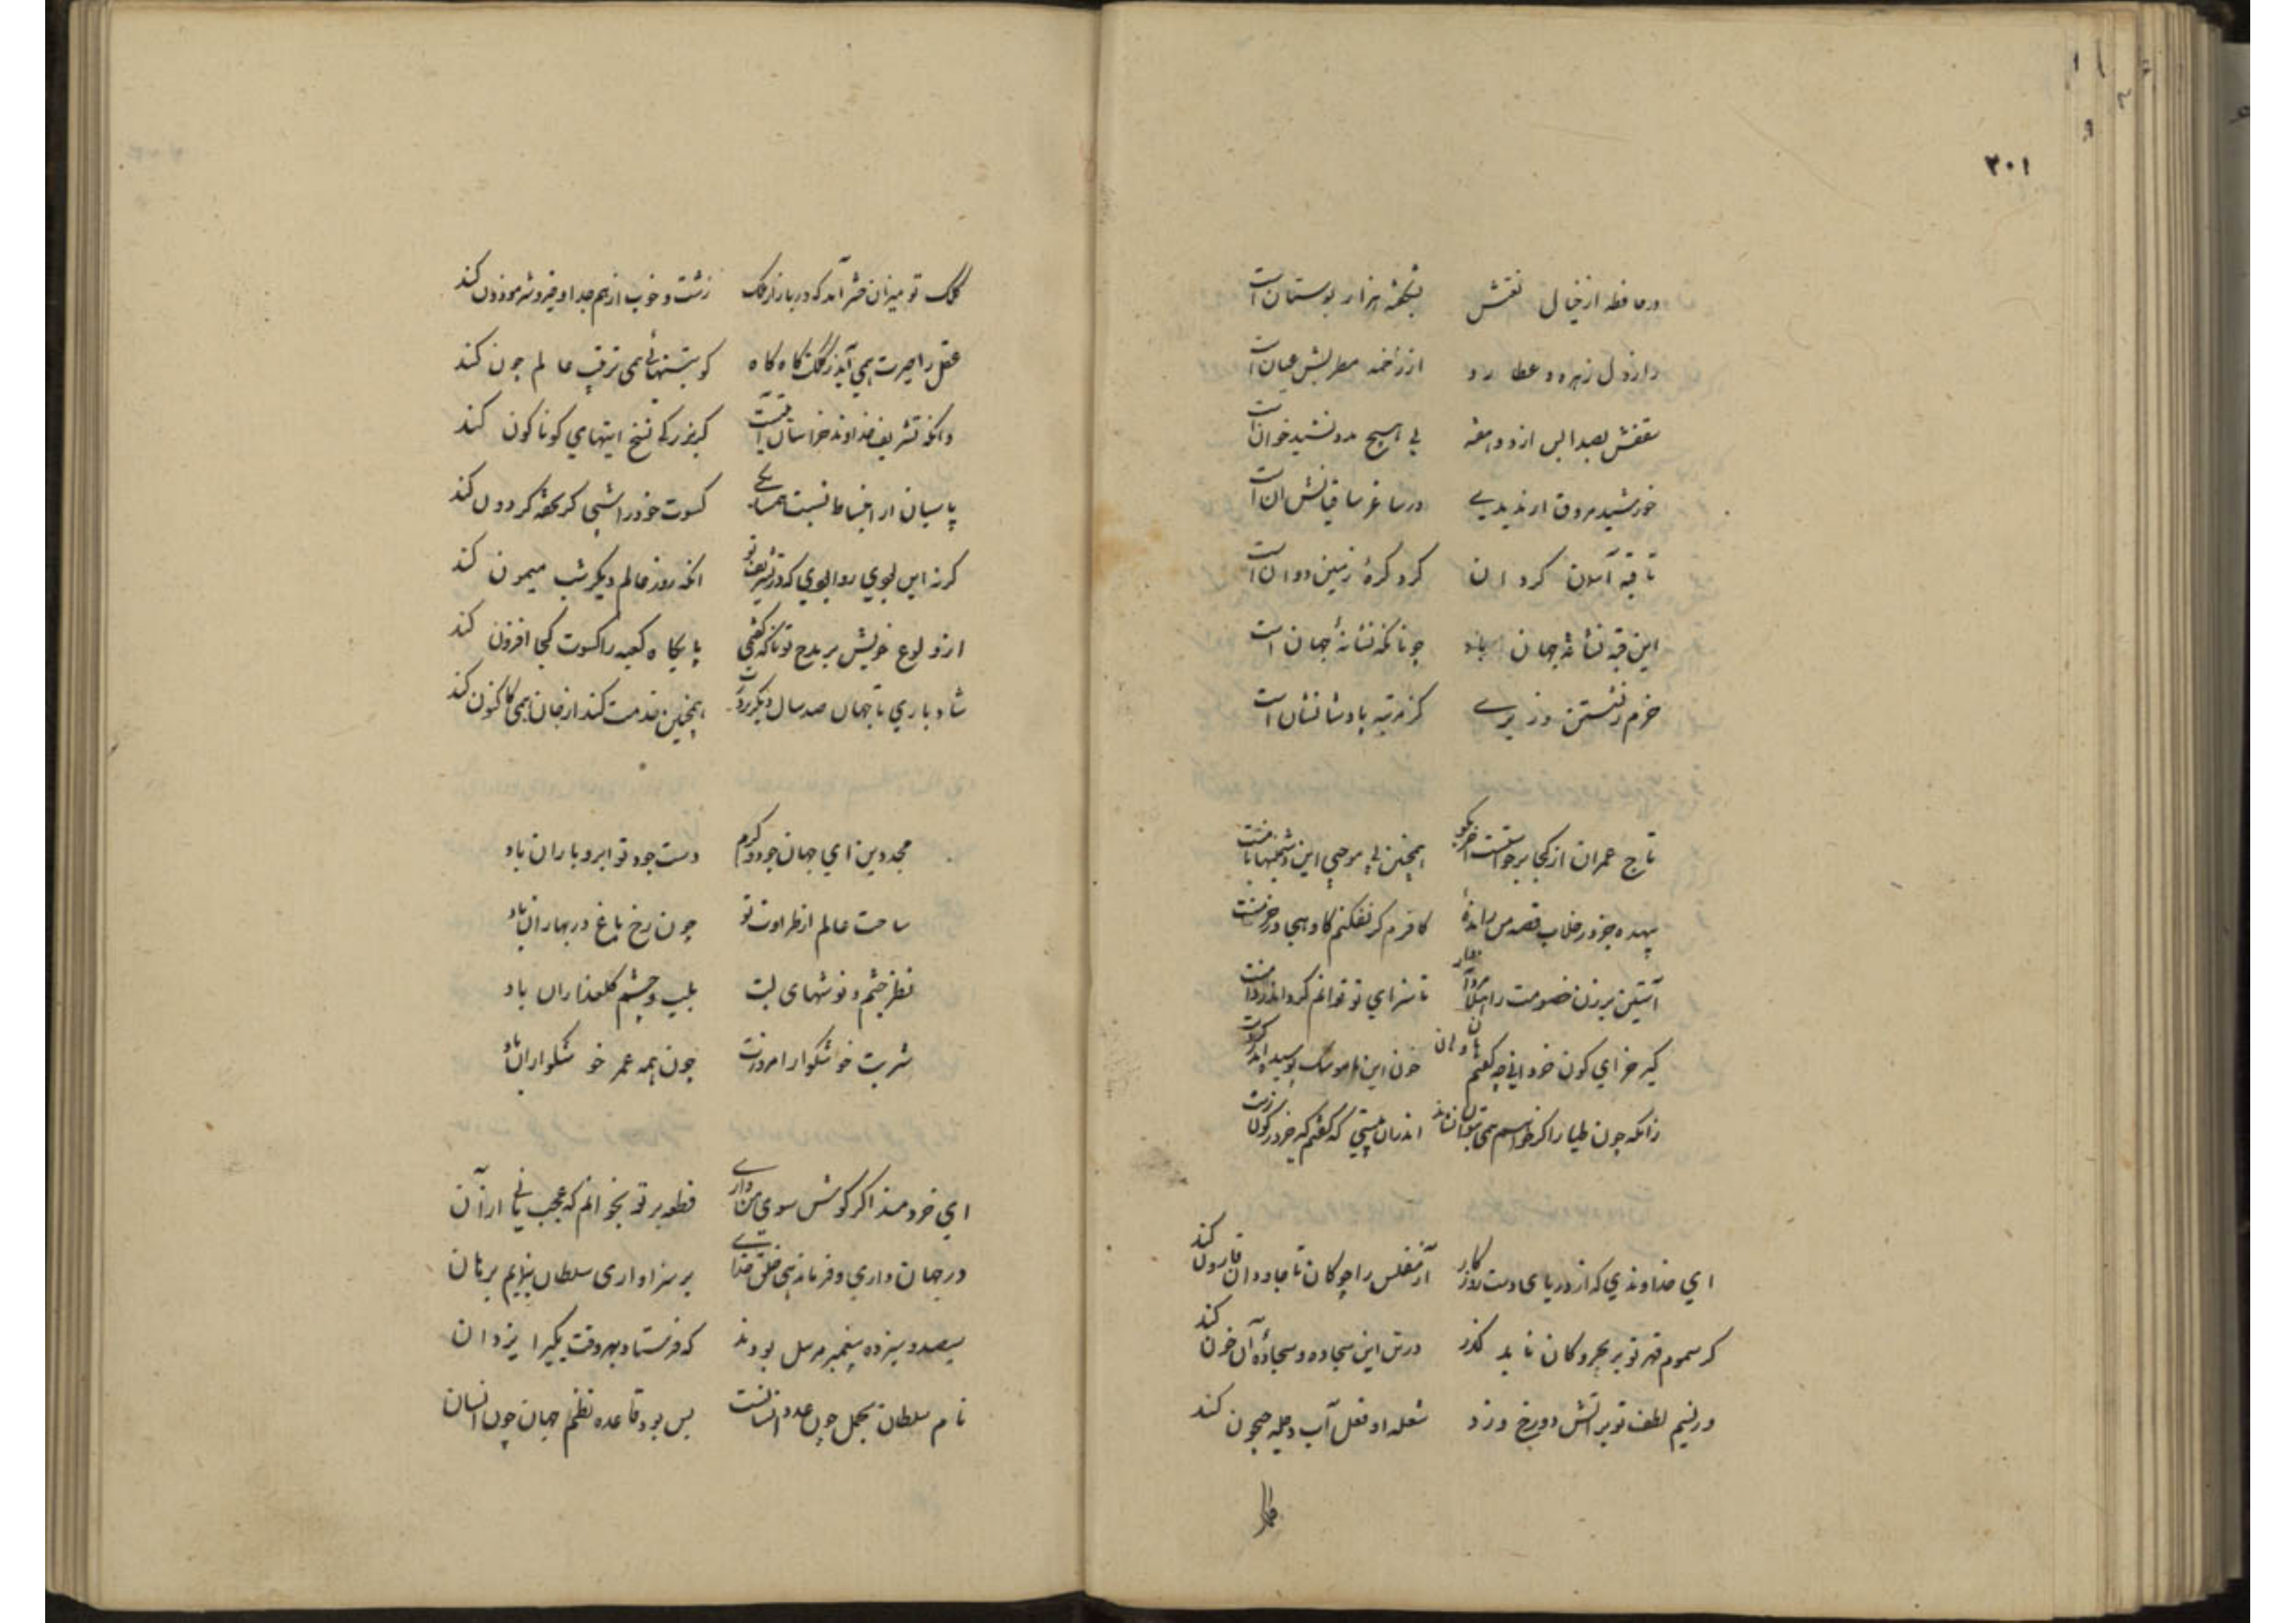 ٢٠١
در حافظه از خیال نقشش بشکفته هزار بوستان است
دارد دل زهره و عطارد از زخمه مطربش عیان است
سقفش بصدا پس از دو هفته بی هیچ مدد نشید خوان است
خورشید مروق ار ندیدی در ساغر ساقیانش آن است
تا قبه آسمان گردان گرد کرهٔ زمین دوان است
این قبه نشانهٔ جهان باد چونانکه نشانهٔ جهان است
خرم ز نشستن وزیری کز مرتبه پادشا نشان است
تاج عمران از کجا برخاستست آخر بگو اینچنین بی موجبی این دشمنیها با منت
بیهده جز در خلاب قصد من رانده کافرم گر نفکنم گاو هجی در خرمنت
آستین بر زن خصومت را تا سزای تو توانم کرد اندر دامنت
کیر خر ای کون خر دانی چه گفتم خون این ناموسک پوسیده اندر گردنت
زانکه چون طیار اگر خواهم همی بتوان نشاند اندران بیتی که گفتم کیر خر در کون زنت
ای خداوندی که از دریای دست روزگار آز مفلس را چو کان تا جاودان قارون کند
گر سموم قهر تو بر بحر و کان یابد گذر در تن این بجاده و سجادهٔ آن خون کند
ور نسیم لطف تو بر آتش دوزخ وزد شعله او فعل آب دجله جیحون کند
کلک
کلک تو میزان حشر آمد که در بازار ملک زشت و خوب از هم جدا و خیر و شر موزون کند
عقل را حیرت همی آید ز کلکت گاه گاه کو بتنهائی همی ترتیب عالم چون کند
وانکه تشریف خداوند خراسان آیتیست گر بزرگی نسخ آیتهای گوناگون کند
پاسبان از اختساط نسبت همسایگی کسوت خود را شبی گر تحفه گردون کند
گرنه این بوی روا بوی که در تشریف تو آنکه روز عالم دیگر شب میمون کند
از ولوع خویش بر مدح تو ناگه گفتمی پایگاه کعبه را کسوت کجا افزون کند
شاد باری تا جهان صد سال دیگر بر درت همچنین خدمت کند از جان همی کاکنون کند
مجد دین ای جهان جود و کرم دست جود تو ابر و باران باد
ساحت عالم از طراوت تو چون رخ باغ در بهاران باد
نظر چشم و نوشهای لبت بلب و چشم گلعذاران باد
شربت خوشگوار امروزت چون همه عمر خوشگواران باد
ای خردمند اگر گوش سوی من داری قطعه بر تو بخوانم که عجب مانی از آن
در جهانداری و فرماندهی خلق خدای بر سزاواری سلطان بنمایم برهان
سیصد و سیزده پیغمبر مرسل بودند که فرستاد بهر وقت یکی را یزدان
نام سلطان بجمل چون عدد ایشانست بس بود قاعده نظم جهان چون ایشان